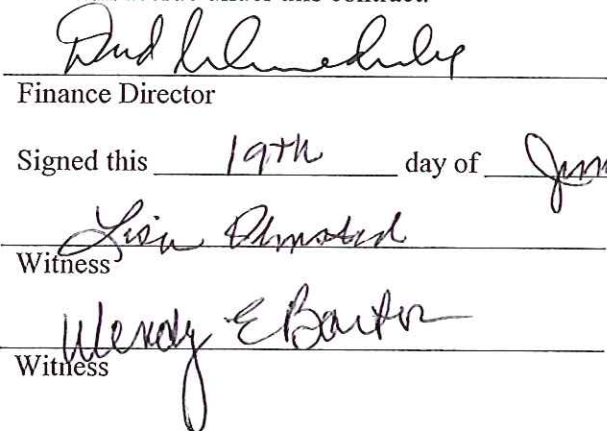 under this contract.
Finance Director
Signed this 19th day of
Lisa Olmsted
Witness
Wendy E Barton
Witness